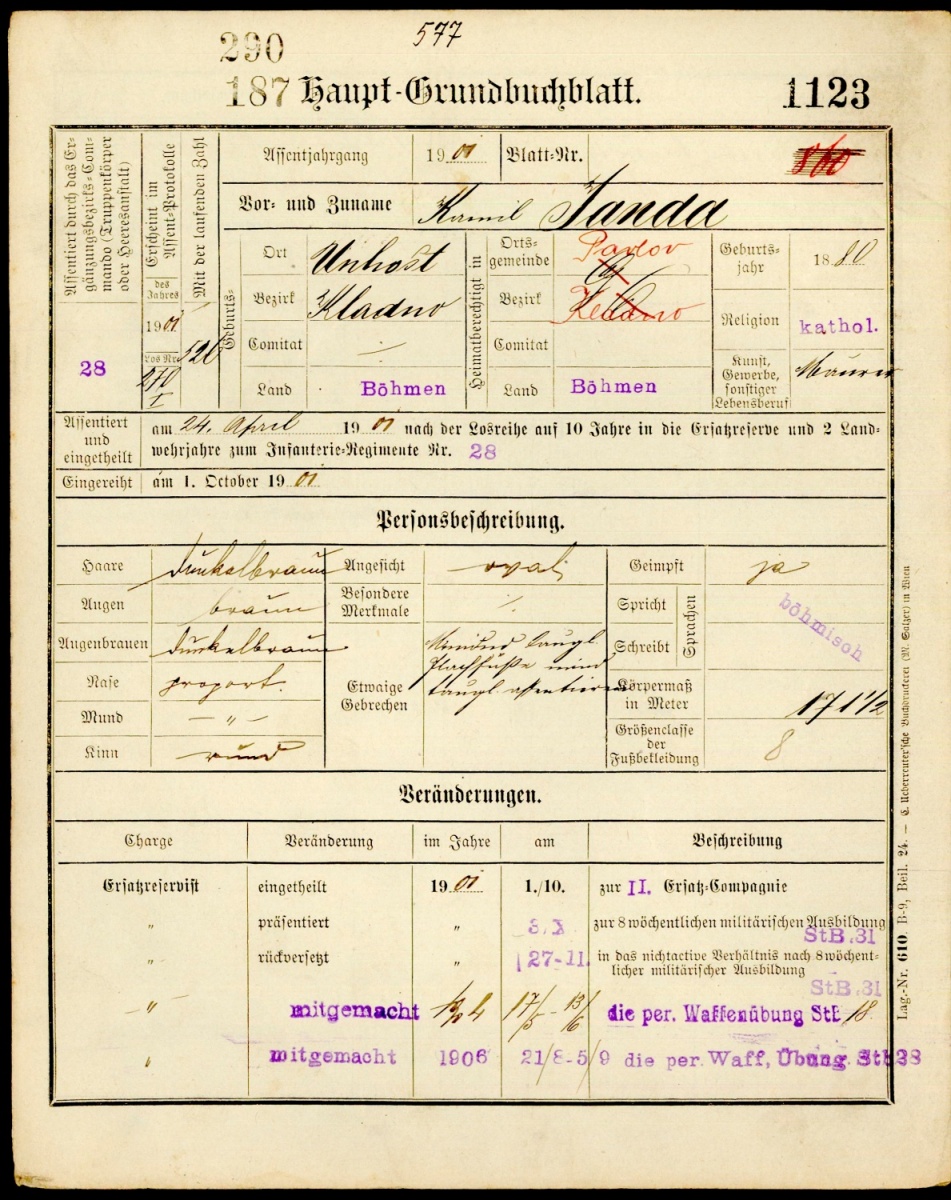 577
290
187 Haupt-Grundbuchblatt. 1123
Assentiert durch das Ergänzungsbezirks-Commando (Truppenkörper oder Heeresanstalt)
28
Erscheint im Assent-Protokolle
des Jahres
1901
Los Nr.
270
I
Mit der laufenden Zahl
126
Assentjahrgang 1901 Blatt-Nr. 860
Vor- und Zuname Kamil Janda
Geburts-
Ort Unhošt
Bezirk Kladno
Comitat ÷
Land Böhmen
Heimatberechtigt in
Ortsgemeinde Pavlov
Bezirk Kladno
Comitat
Land Böhmen
Geburtsjahr 1880
Religion kathol.
Kunst, Gewerbe, sonstiger Lebensberuf Maurer
Assentiert und eingetheilt
am 24. April 1901 nach der Losreihe auf 10 Jahre in die Ersatzreserve und 2 Land-
wehrjahre zum Infanterie-Regimente Nr. 28
Eingereiht am 1. October 1901
Personsbeschreibung.
Haare dunkelbraun
Augen braun
Augenbrauen dunkelbraun
Nase proport.
Mund — „ —
Kinn rund
Angesicht oval
Besondere Merkmale ·/.
Etwaige Gebrechen
taugl.
Plachfüße mind
taugl. assentieren
Geimpft ja
Spricht
Schreibt
Sprachen
böhmisch
Körpermaß in Meter 171 1/2
Größenclasse der Fußbekleidung 8
Veränderungen.
Charge Veränderung im Jahre am Beschreibung
Ersatzreservist eingetheilt 1901 1./10. zur II. Ersatz-Compagnie
„ präsentiert „ 3/X zur 8 wöchentlichen militärischen Ausbildung
StB.31
„ rückversetzt „ 27-11. in das nichtactive Verhältnis nach 8 wöchent-
licher militärischer Ausbildung
StB.31
— „ — mitgemacht 1904 17/5 - 13/6 die per. Waffenübung StB 18.
„ mitgemacht 1906 21/8-5/9 die per. Waff, Übung. StB 28
Lag.-Nr. 610. B-9, Beil. 24. — C. Ueberreuter'sche Buchdruckerei (M. Salzer) in Wien